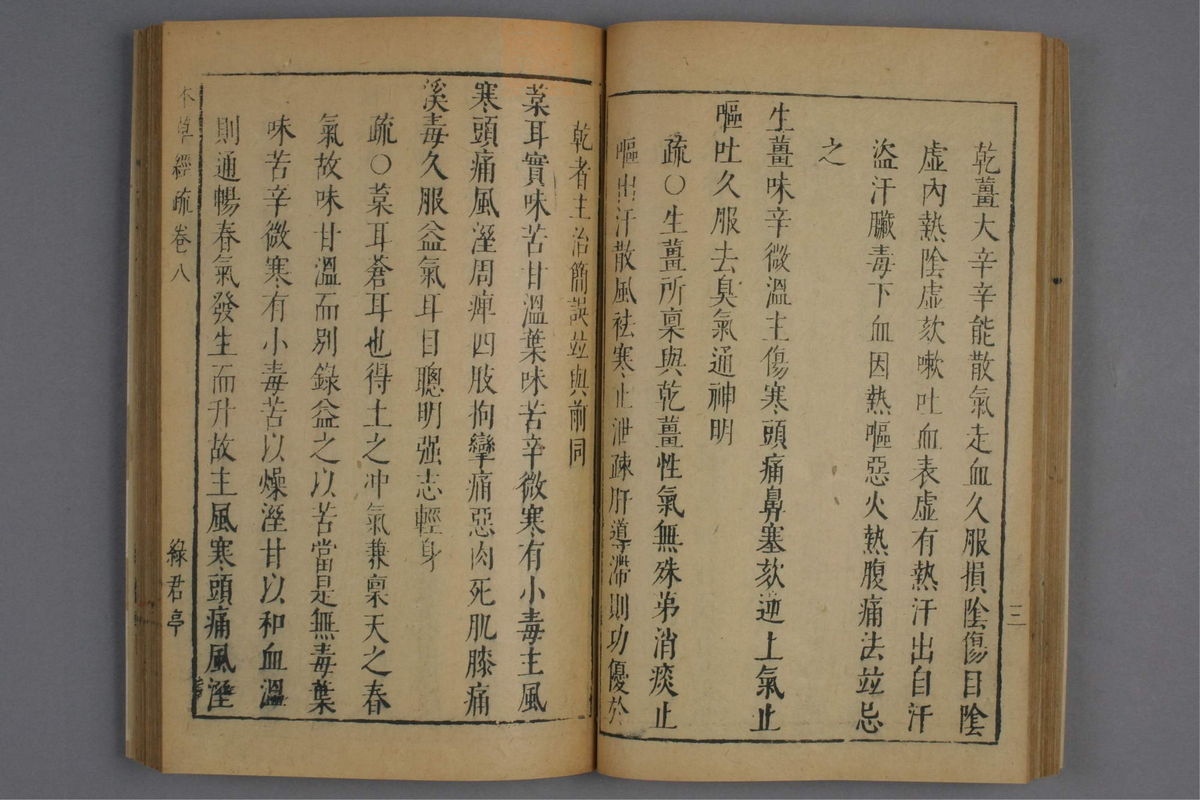 乾薑大辛辛能散氣走血久服損陰傷目陰
虛內熱陰虛欬嗽吐血表虛有熱汗出自汗
盜汗臟毒下血因熱嘔惡火熱腹痛法並忌
之
生薑味辛微溫主傷寒頭痛鼻塞欬逆上氣止
嘔吐久服去臭氣通神明
疏○生薑所稟與乾薑性氣無殊第消痰止
嘔出汗散風祛寒止泄疎肝導滯則功優於
三
乾者主治簡誤並與前同
葈耳實味苦甘溫葉味苦辛微寒有小毒主風
寒頭痛風溼周痺四肢拘攣痛惡肉死肌膝痛
溪毒久服益氣耳目聰明强志輕身
疏○葈耳蒼耳也得土之冲氣兼稟天之春
氣故味甘溫而別錄益之以苦當是無毒葉
味苦辛微寒有小毒苦以燥溼甘以和血溫
則通暢春氣發生而升故主風寒頭痛風溼
本草經疏卷八
綠君亭